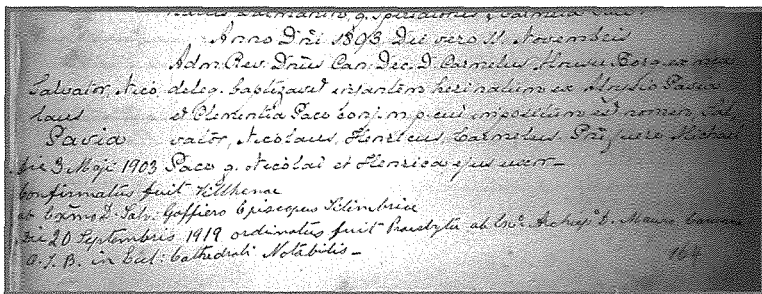 Anno Dñi 1893 Die vero 11 Novembris
Adm Rev. Dnus Can. Dec. D. Carmelus ex mea
Salvator Nico deleg. baptizavit infantem heri natum ex Aloysio Pavia
laus et Clementia Pace conj. m p. cui impositum est nomen, Sal
Pavia vator, Nicolaus, Henricus, Carmelus. Pñi fuere Michael
Die 3 Maji 1903 Pace q. Nicolai et Henrica ejus uxor—
Confirmatus fuit
ab Exmo D. Salv. Gaffiero Episcopus Selimbriae
Die 20 Septembris 1919 ordinatus fuit Presbyter ab Archiep. D. Mauro Caruana
O. S. B. in Eccl: Cathedrali Notabilis—
164